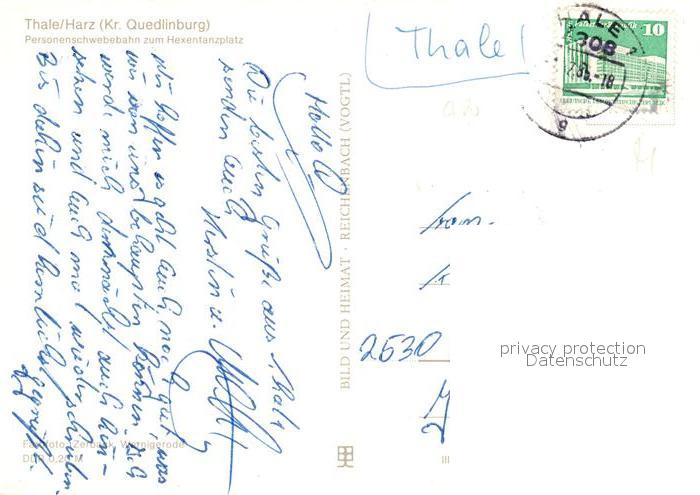 Thale/Harz (Kr. Quedlinburg)
Personenschwebebahn zum Hexentanzplatz
Thale!
THALE
4308
-18
g
10
DEUTSCHE DEMOKRATISCHE REPUBLIK
Hallo
Die besten Grüße aus Thale
senden Euch
Kerstin u.
Wir hoffen es geht Euch noch gut, was
wir von uns behaupten können. Ich
werde mich demnächst auch
sehen und Euch mal wieder schreiben
Bis dahin seid herzlichst
gegrüßt.
BILD UND HEIMAT · REICHENBACH (VOGTL)
Fam.
2530
privacy protection
Datenschutz
Farbfoto: Zerback, Wernigerode
DDR 0,20 M
III